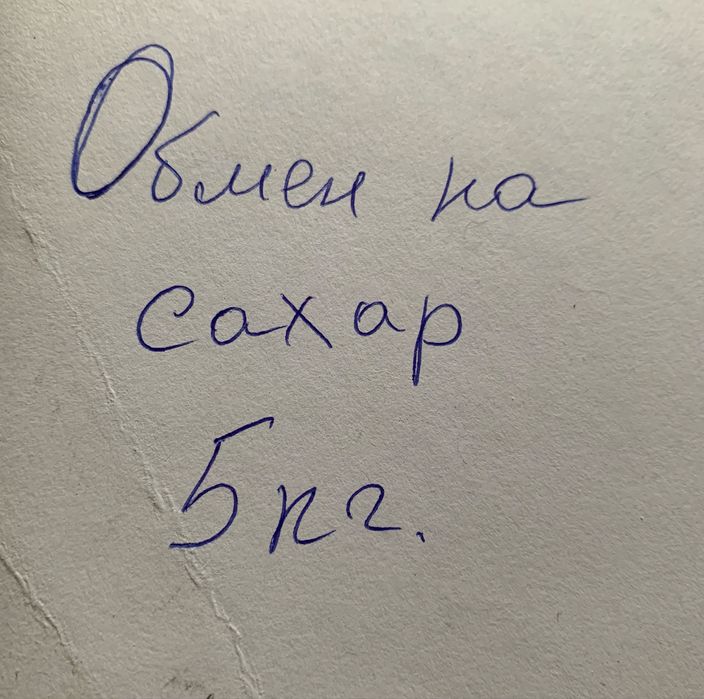 Обмен на
сахар
5кг.